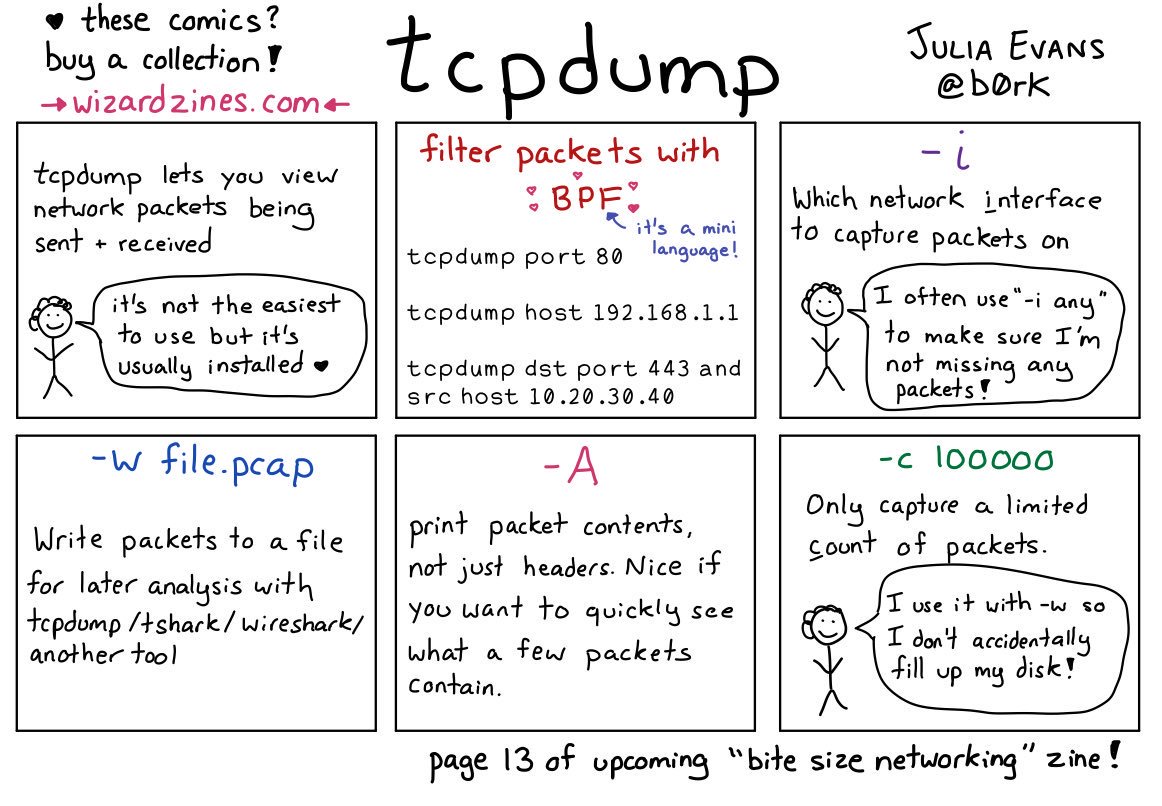 ♥ these comics?
buy a collection!
→wizardzines.com←
tcpdump
JULIA EVANS
@b0rk
tcpdump lets you view
network packets being
sent + received
it's not the easiest
to use but it's
usually installed ♥
filter packets with
BPF
it's a mini
language!
tcpdump port 80
tcpdump host 192.168.1.1
tcpdump dst port 443 and
src host 10.20.30.40
-i
Which network interface
to capture packets on
I often use "-i any"
to make sure I'm
not missing any
packets!
-w file.pcap
Write packets to a file
for later analysis with
tcpdump/tshark/wireshark/
another tool
-A
print packet contents,
not just headers. Nice if
you want to quickly see
what a few packets
contain.
-c 100000
Only capture a limited
count of packets.
I use it with -w so
I don't accidentally
fill up my disk!
page 13 of upcoming "bite size networking" zine!